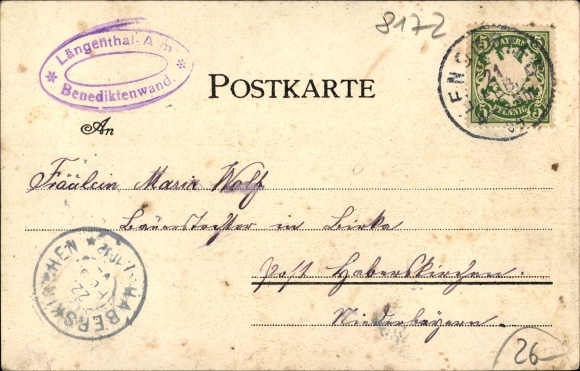 8172
Längenthal-Alm
Benediktenwand.
POSTKARTE
BAYERN
5 5
PFENNIG
An
Fräulein Maria Wolf
Bauerstochter in Birka
Post Haberskirchen.
Niederbayern.
HABERSKIRCHEN
22
26-